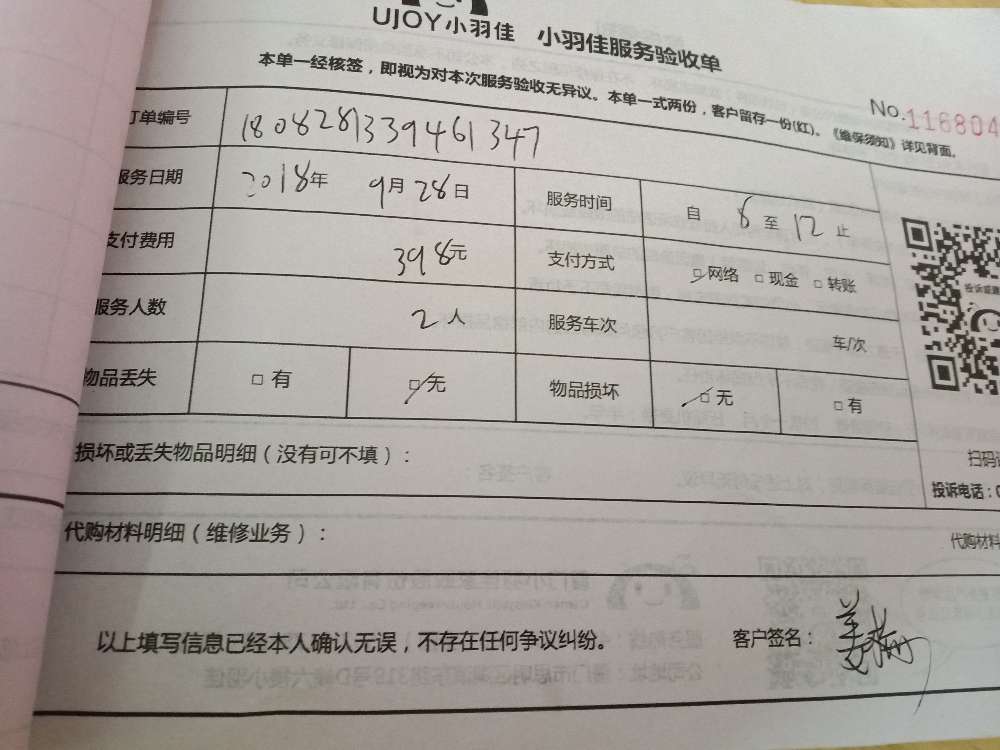 UJOY小羽佳 小羽佳服务验收单
本单一经核签，即视为对本次服务验收无异议。本单一式两份，客户留存一份(红)。《维保须知》详见背面。
No.116804
订单编号 1808281339461347
服务日期 2018年 9月 28日 服务时间 自 8 至 12 止
支付费用 398元 支付方式 □网络 □现金 □转账
服务人数 2人 服务车次 车/次
物品丢失 □有 □无 物品损坏 □无 □有
投诉或建
损坏或丢失物品明细（没有可不填）：
扫码
投诉电话：0
代购材料明细（维修业务）：
代购材料
以上填写信息已经本人确认无误，不存在任何争议纠纷。 客户签名：